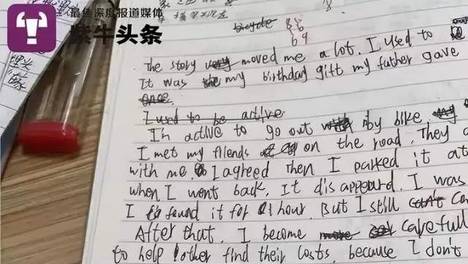 最色深度报道媒体
紫牛头条
bicycle
86
69
The story moved me a lot. I used to
It was my birthday gift my father gave
once.
I used to be active
I'm active to go out by bike
I met my fliends on the road. They a
with me. I agreed then I parked it at
when I went back, It disappeard. I was
I found it for 1 hour. But I still can't
After that, I become more carefull
to help other find their costs, because I don't